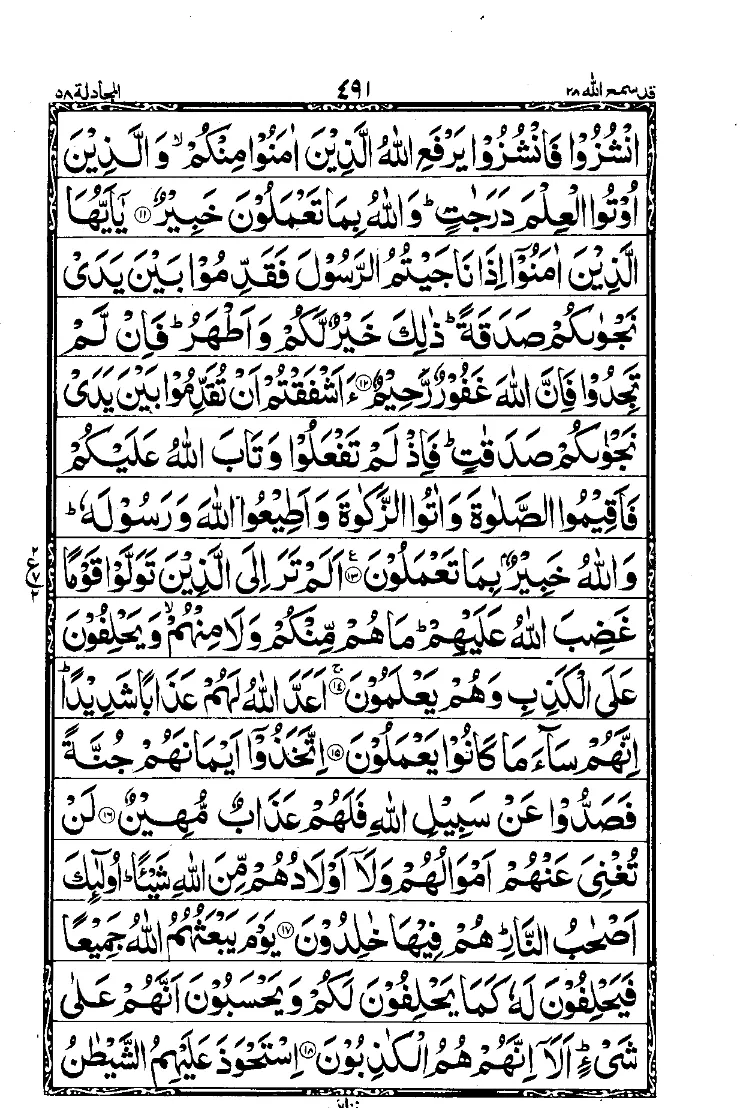 قد سمع الله ٢٨ ٤٩١ المجادلة ٥٨
انْشُزُوْا فَانْشُزُوْا يَرْفَعِ اللّٰهُ الَّذِيْنَ اٰمَنُوْا مِنْكُمْ ۙ وَالَّذِيْنَ
اُوْتُوا الْعِلْمَ دَرَجٰتٍ ؕ وَاللّٰهُ بِمَا تَعْمَلُوْنَ خَبِيْرٌ ۝۱۱ يٰۤاَيُّهَا
الَّذِيْنَ اٰمَنُوْۤا اِذَا نَاجَيْتُمُ الرَّسُوْلَ فَقَدِّمُوْا بَيْنَ يَدَىْ
نَجْوٰىكُمْ صَدَقَةً ؕ ذٰلِكَ خَيْرٌ لَّكُمْ وَاَطْهَرُ ؕ فَاِنْ لَّمْ
تَجِدُوْا فَاِنَّ اللّٰهَ غَفُوْرٌ رَّحِيْمٌ ۝۱۲ ءَاَشْفَقْتُمْ اَنْ تُقَدِّمُوْا بَيْنَ يَدَىْ
نَجْوٰىكُمْ صَدَقٰتٍ ؕ فَاِذْ لَمْ تَفْعَلُوْا وَتَابَ اللّٰهُ عَلَيْكُمْ
فَاَقِيْمُوا الصَّلٰوةَ وَاٰتُوا الزَّكٰوةَ وَاَطِيْعُوا اللّٰهَ وَرَسُوْلَهٗ ؕ
وَاللّٰهُ خَبِيْرٌۢ بِمَا تَعْمَلُوْنَ ۝۱۳ ع اَلَمْ تَرَ اِلَى الَّذِيْنَ تَوَلَّوْا قَوْمًا
٢ ع ٧ ٢
غَضِبَ اللّٰهُ عَلَيْهِمْ ؕ مَا هُمْ مِّنْكُمْ وَلَا مِنْهُمْ ۙ وَيَحْلِفُوْنَ
عَلَى الْكَذِبِ وَهُمْ يَعْلَمُوْنَ ۝۱٤ ۚ اَعَدَّ اللّٰهُ لَهُمْ عَذَابًا شَدِيْدًا ؕ
اِنَّهُمْ سَآءَ مَا كَانُوْا يَعْمَلُوْنَ ۝۱۵ اِتَّخَذُوْۤا اَيْمَانَهُمْ جُنَّةً
فَصَدُّوْا عَنْ سَبِيْلِ اللّٰهِ فَلَهُمْ عَذَابٌ مُّهِيْنٌ ۝۱٦ لَنْ
تُغْنِىَ عَنْهُمْ اَمْوَالُهُمْ وَلَاۤ اَوْلَادُهُمْ مِّنَ اللّٰهِ شَيْئًا ؕ اُولٰٓئِكَ
اَصْحٰبُ النَّارِ ؕ هُمْ فِيْهَا خٰلِدُوْنَ ۝۱۷ يَوْمَ يَبْعَثُهُمُ اللّٰهُ جَمِيْعًا
فَيَحْلِفُوْنَ لَهٗ كَمَا يَحْلِفُوْنَ لَكُمْ وَيَحْسَبُوْنَ اَنَّهُمْ عَلٰى
شَىْءٍ ؕ اَلَاۤ اِنَّهُمْ هُمُ الْكٰذِبُوْنَ ۝۱۸ اِسْتَحْوَذَ عَلَيْهِمُ الشَّيْطٰنُ